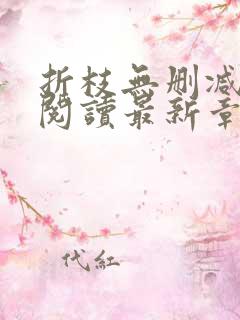 折枝無刪減
閱讀最新章
代紅